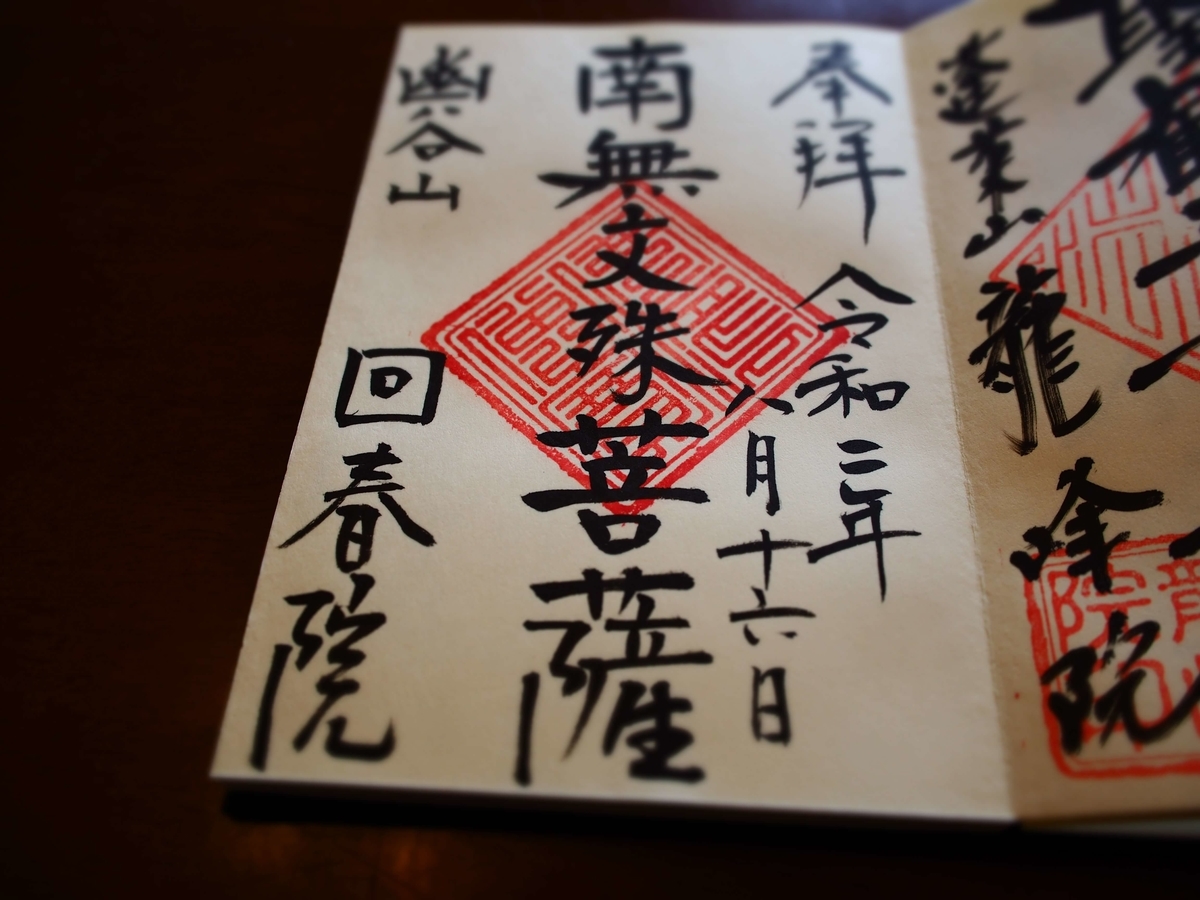 聖観
蓬莱山 龍峰院
奉拝
令和三年
八月十六日
南無文殊菩薩
幽谷山 回春院